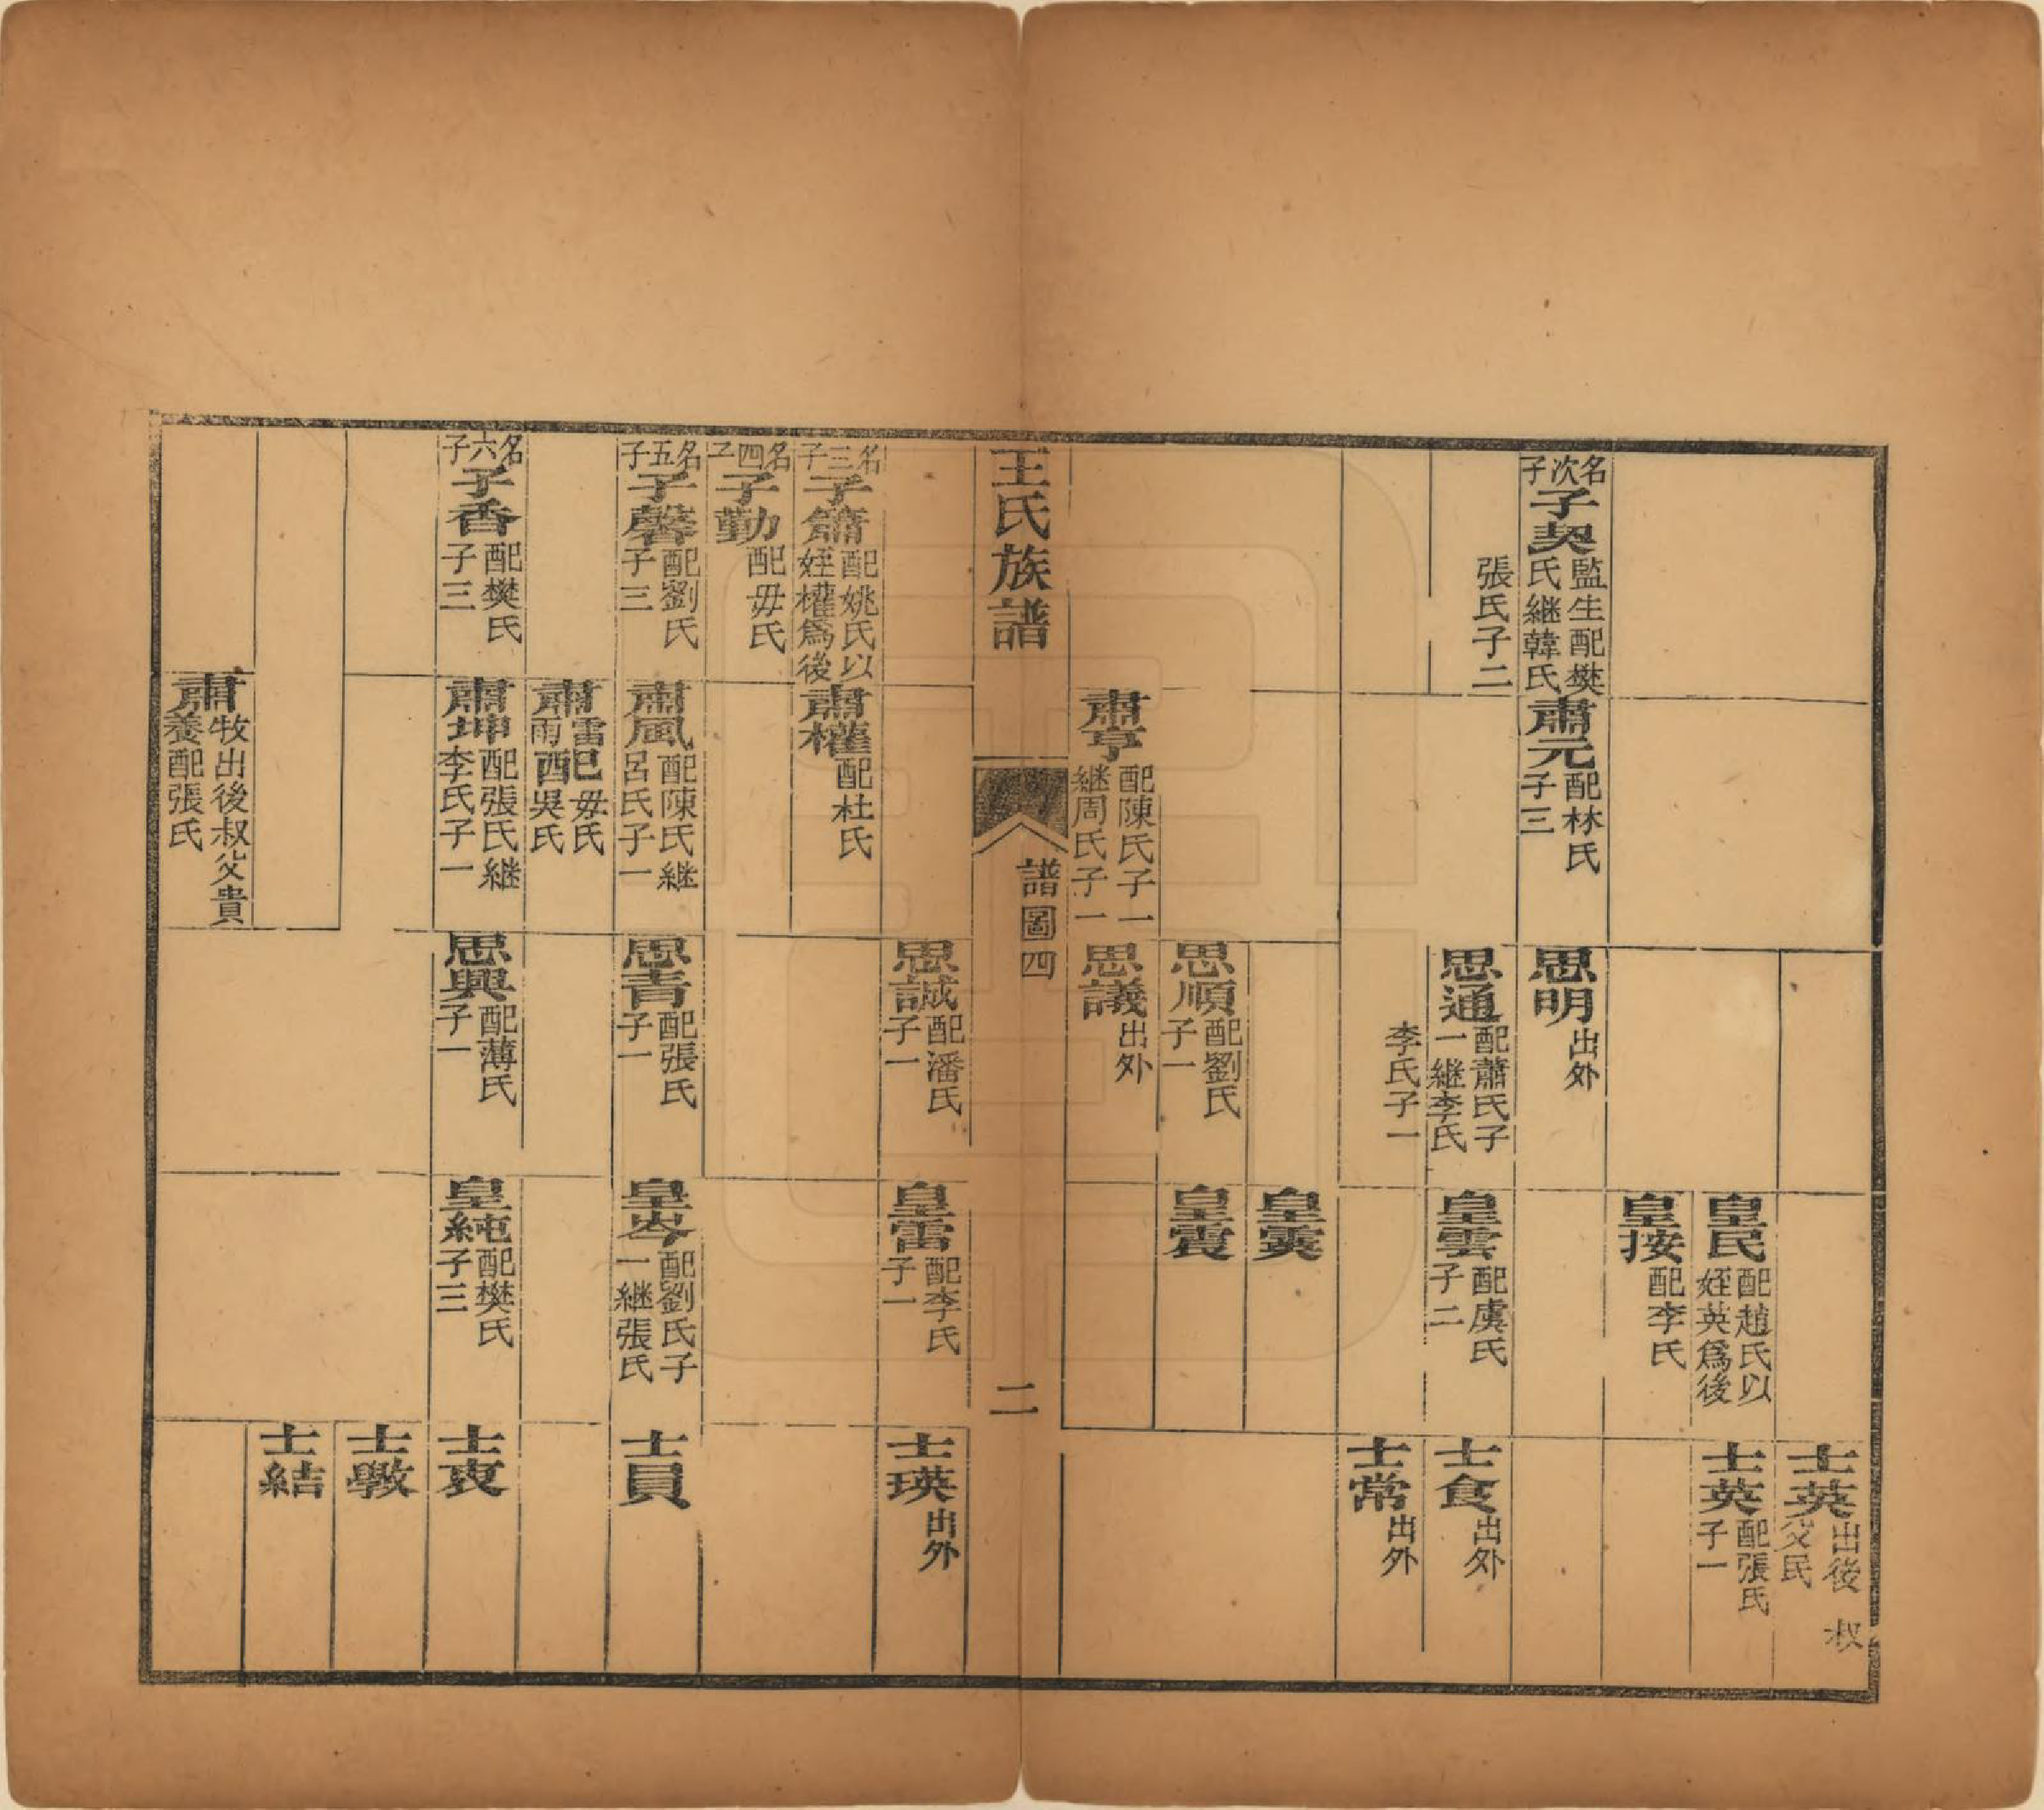 名次子
子契
監生配樊
氏継韓氏
張氏子二
肅元
配林氏
子三
肅亨
配陳氏子一
継周氏子一
思明
出外
思通
配蕭氏子
一継李氏
李氏子一
思順
配劉氏
子一
思議
出外
皇民
配趙氏以
姪英爲後
皇按
配李氏
皇雲
配虞氏
子二
皇霙
皇震
士英
出後 叔
父民
士英
配張氏
子一
士食
出外
士常
出外
王氏族譜
譜圖四
二
名三子
子簫
配姚氏以
姪權爲後
名四子
子勤
配毋氏
名五子
子馨
配劉氏
子三
名六子
子香
配樊氏
子三
肅權
配杜氏
肅風
配陳氏継
呂氏子一
肅
雷配毋氏
雨配吳氏
肅坤
配張氏継
李氏子一
肅
牧出後叔父貴
養配張氏
思誠
配潘氏
子一
思青
配張氏
子一
思興
配薄氏
子一
皇雷
配李氏
子一
皇岑
配劉氏子
一継張氏
皇純
配樊氏
子三
士瑛
出外
士員
士衷
士斆
士結